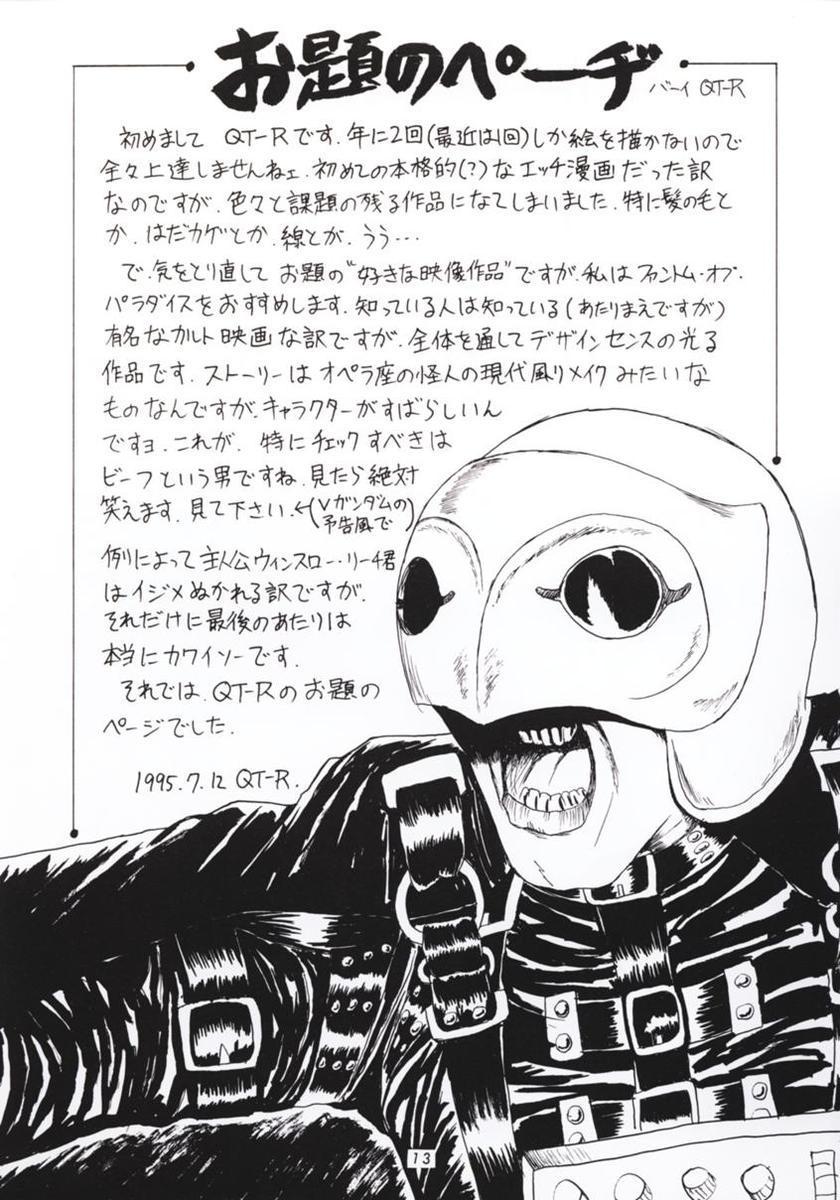 お題のページ
バーイ QT-R
初めまして QT-Rです.年に2回(最近は1回)しか絵を描かないので
全々上達しませんねェ.初めての本格的(?)なエッチ漫画だった訳
なのですが、色々と課題の残る作品になてしまいました.特に髪の毛と
か.はだカゲとか.線とが.うう…
で.気をとり直して お題の"好きな映像作品"ですが.私はファントム・オブ・
パラダイスをおすすめします.知っている人は知っている(あたりまえですが)
有名なカルト映画な訳ですが.全体を通してデザインセンスの光る
作品です.ストーリーはオペラ座の怪人の現代風リメイクみたいな
ものなんですが.キャラクターがすばらしいん
ですョ.これが、特にチェックすべきは
ビーフという男ですね.見たら絶対
笑えます.見て下さい.←(Vガンダムの
予告風で)
例によって主人公ウィンスロー・リーチ君
はイジメぬかれる訳ですが.
それだけに最後のあたりは
本当にカワイソーです.
それでは.QT-Rのお題の
ページでした.
1995.7.12 QT-R.
13